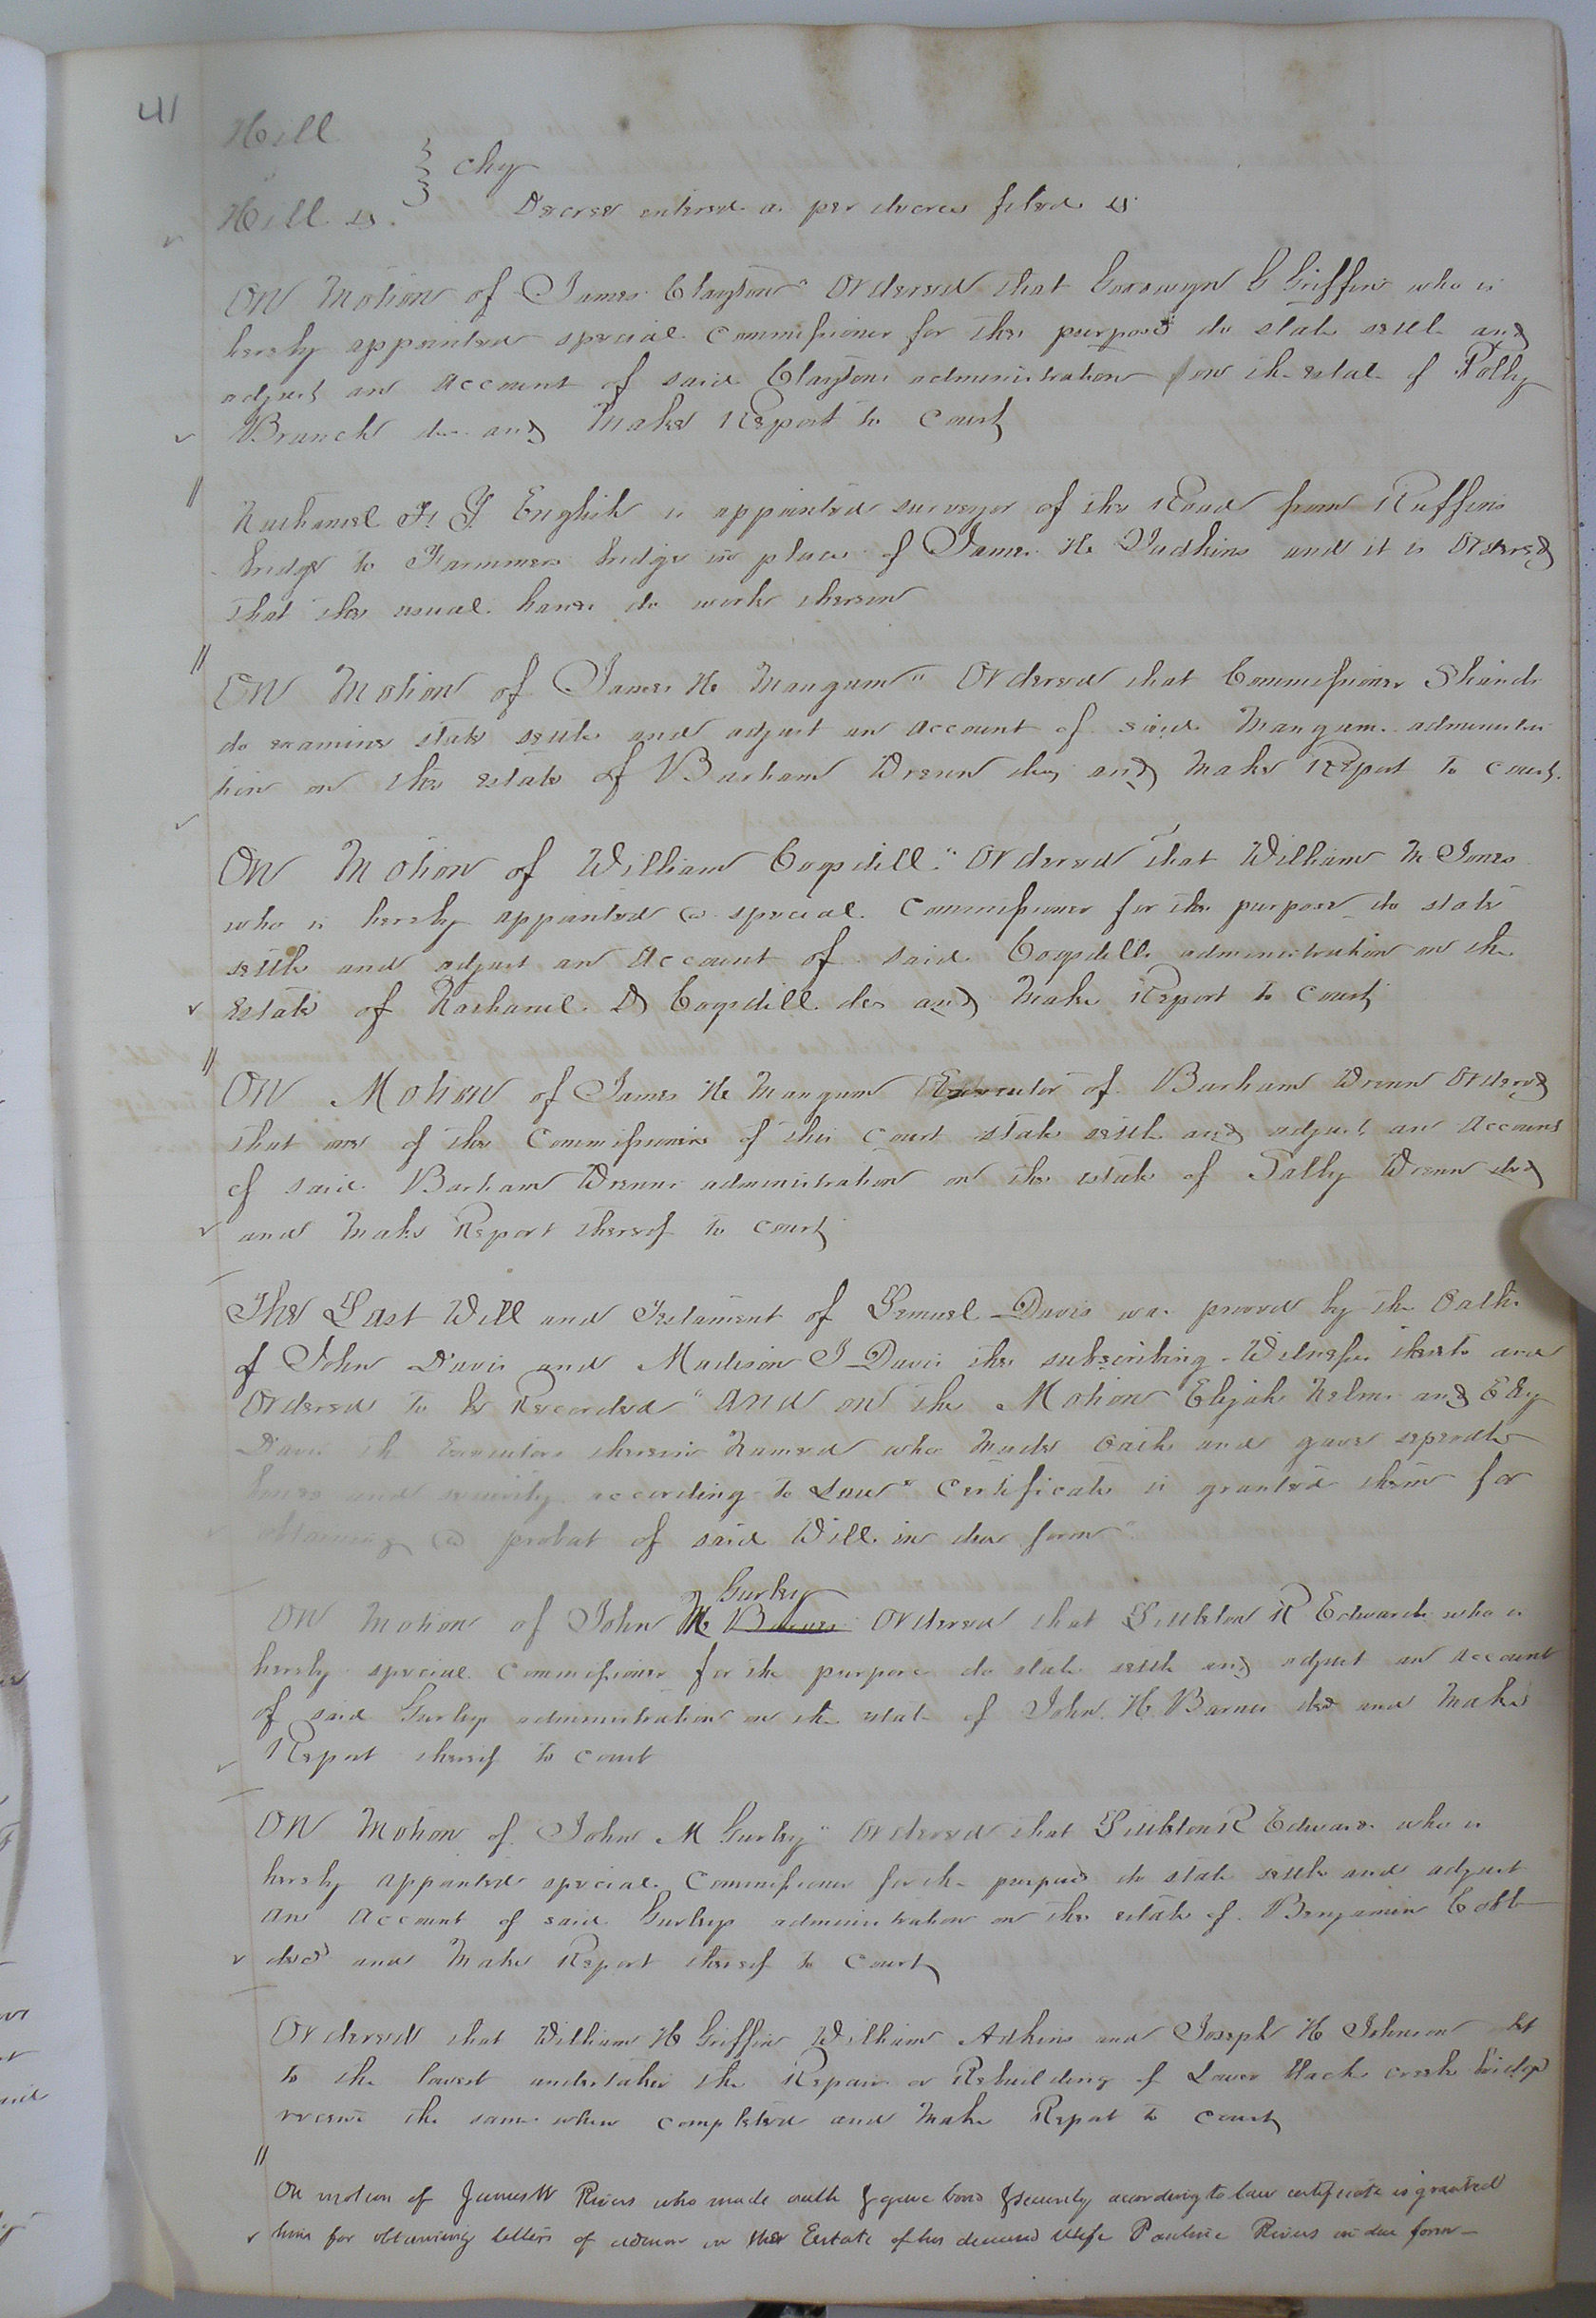 41
Hill
} chy
Hill &. Decree entered as per decree filed &
On Motion of James Clayton" Ordered that Goodwyn C Griffin who is
hereby appointed special commissioner for the purpose do state settle and
adjust an account of said Claytons administration on the estate of Polly
Branch dec and make Report to Court
Nathaniel F. Y. English is appointed surveyor of the Road from Ruffins
bridge to Farmmers bridge in place of James H Judkins and it is Ordered
that the usual hands do work thereon
On Motion of James H Mangum" Ordered that Commissioner Shands
do examine state settle and adjust an account of said Mangums administra
tion on the estate of Barham Drenn dec and make Report to court.
On Motion of William Cogsdill" Ordered that William M Jones
who is hereby appointed a special Commissioner for the purpose do state
settle and adjust an account of said Cogsdills administration on the
Estate of Nathaniel D Cogsdill dec and make Report to Court
On Motion of James H Mangum Executor of Barham Drenn Ordered
that one of the commissioners of this court state settle and adjust an Account
of said Barham Drenns administration on the estate of Sally Drenn decd
and make Report thereof to court
The Last Will and Testament of Lemuel Davis was proved by the Oaths
of John Davis and Madison J Davis the subscribing Witnesses thereto and
Ordered to be Recorded" And on the Motion Elijah Helms and Edy
Davis the Executors therein Named who Made Oath and gave seperate
bonds and security according to Law" Certificate is granted them for
obtaining a probat of said Will in due form"
Gurley
On Motion of John M Barnes Ordered that Littleton R Edwards who is
hereby special commissioner for the purpose do state settle and adjust an account
of said Gurleys administration on the estate of John H Barnes decd and make
Report thereof to court
On Motion of John M Gurley" Ordered that Littleton R Edwards who is
hereby appointed special Commissioner for the purpose do state settle and adjust
an account of said Gurleys administration on the estate of Benjamin Cobb
decd and make Report thereof to Court
Ordered that William H Griffin William Adkins and Joseph H Johnson let
to the lowest undertaker the Repair or Rebuilding of Lower Black creek bridge
receive the same when completed and make Report to court
On motion of James W Rivers who made oath & gave bond & security according to law certificate is granted
him for obtaining letters of admon on the Estate of his deceased Wife Pauline Rivers in due form